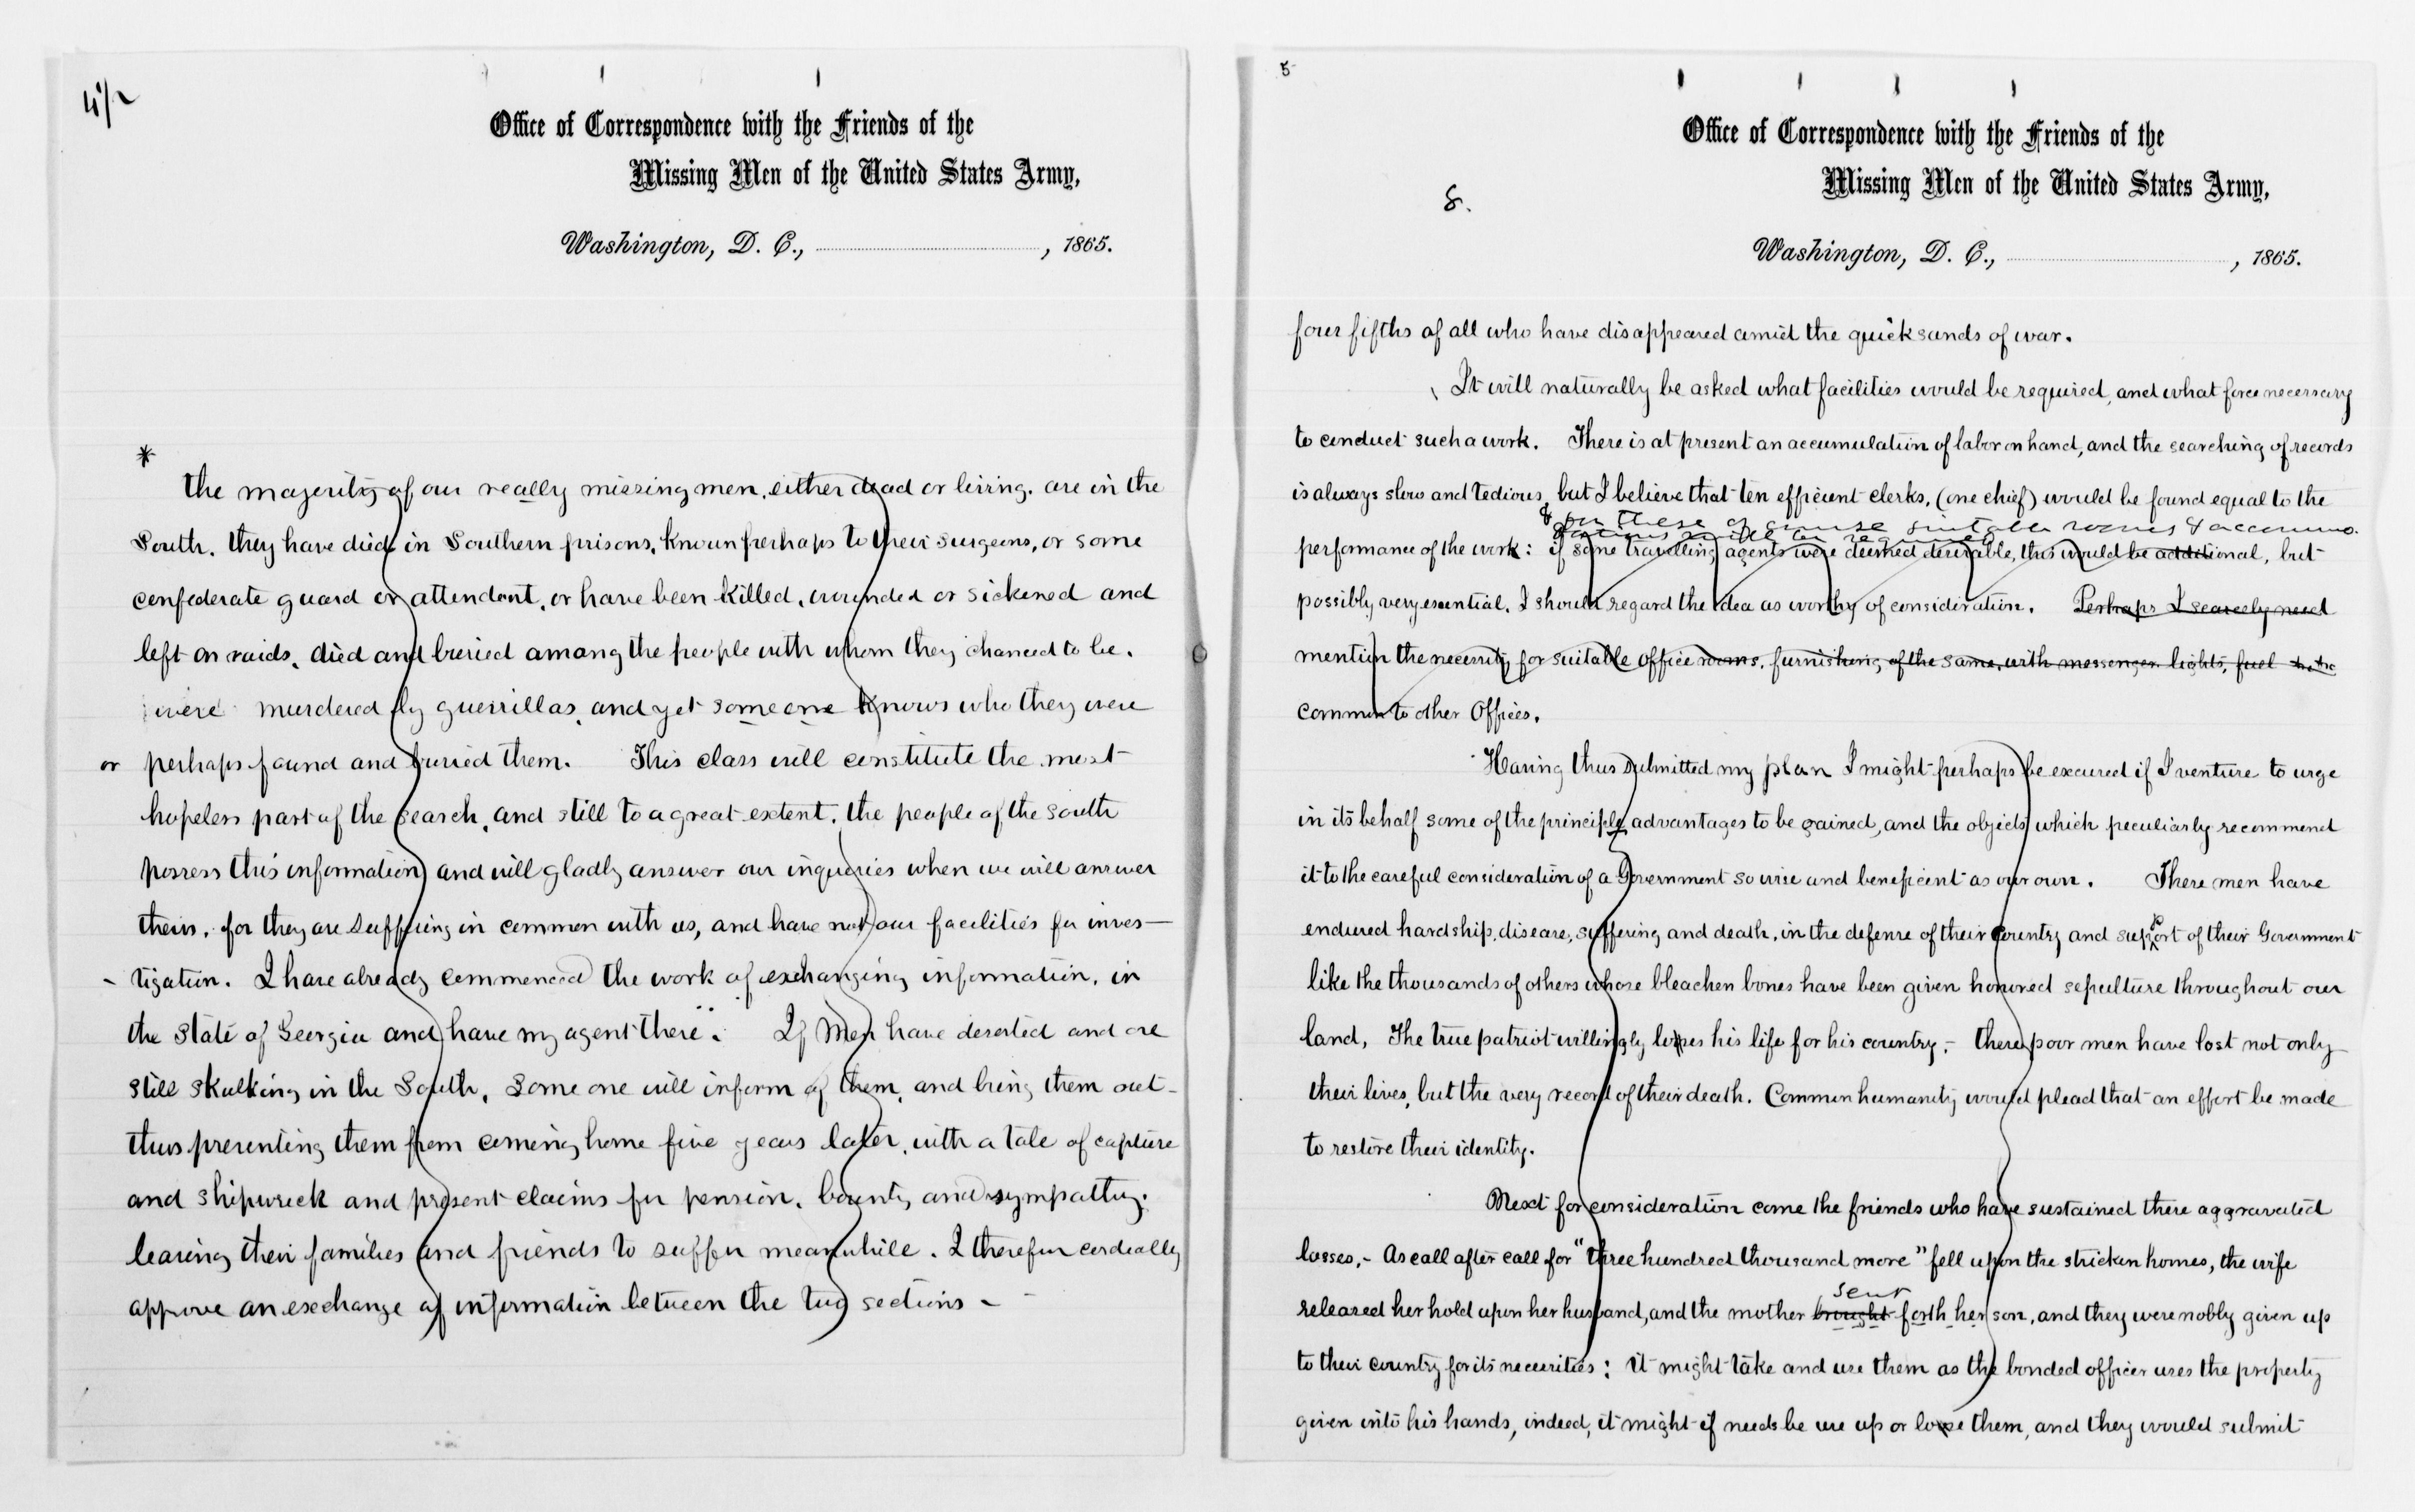 4 1/2
Office of Correspondence with the Friends of the
Missing Men of the United States Army,
Washington, D. C., , 1865.
*
the majority of our really missing men, either dead or living, are in the
South. they have died in Southern prisons, known perhaps to their surgeons, or some
confederate guard or attendant, or have been killed, wounded or sickened and
left on raids, died and buried among the people with whom they chanced to be.
were murdered by guerrillas, and yet some one knows who they were
or perhaps found and buried them. This class will constitute the most
hopeless part of the search, and still to a great extent, the people of the south
possess this information and will gladly answer our inquiries when we will answer
theirs, for they are suffering in common with us, and have not our facilities for inves-
- tigation. I have already commenced the work of exchanging information, in
the State of Georgia and have my agent there. If Men have deserted and are
still skulking in the South, some one will inform of them, and bring them out -
thus preventing them from coming home five years later, with a tale of capture
and shipwreck and present claims for pension, bounty and sympathy.
leaving their families and friends to suffer meanwhile. I therefore cordially
approve an exchange of information between the two sections -
5
Office of Correspondence with the Friends of the
Missing Men of the United States Army,
8.
Washington, D. C., , 1865.
four fifths of all who have disappeared amid the quicksands of war.
It will naturally be asked what facilities would be required, and what force necessary
to conduct such a work. There is at present an accumulation of labor on hand, and the searching of records
is always slow and tedious, but I believe that ten efficient clerks, (one chief) would be found equal to the
& for these of course suitable rooms & accommo-
dations would be required
performance of the work: if some travelling agents were deemed desirable, this would be additional, but
possibly very essential. I should regard the idea as worthy of consideration. Perhaps I scarcely need
mention the necessity for suitable office rooms, furnishing of the same, with messenger lights, fuel
common to other Offices.
Having thus submitted my plan I might perhaps be excused if I venture to urge
in its behalf some of the principle advantages to be gained, and the objects which peculiarly recommend
it to the careful consideration of a Government so wise and beneficent as our own. These men have
endured hardship, disease, suffering and death, in the defense of their country and support of their Government
like the thousands of others whose bleachen bones have been given honored sepulture throughout our
land, The true patriot willingly loses his life for his country, - these poor men have lost not only
their lives, but the very record of their death. Common humanity would plead that an effort be made
to restore their identity.
Next for consideration come the friends who have sustained these aggravated
losses, - As call after call for "three hundred thousand more" fell upon the stricken homes, the wife
sent
released her hold upon her husband, and the mother brought forth her son, and they were nobly given up
to their country for its necessities: it might take and use them as the bonded officer uses the property
given into his hands, indeed, it might if needs be use up or lose them, and they would submit